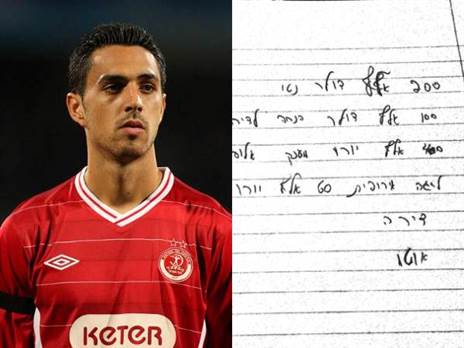 KETER
200 אלף דולר נטו
100 אלף דולר הנחה לדיר
אלף יורו מענק אליפ
ליגה אירופית אלף יורו
דירה
אוטו